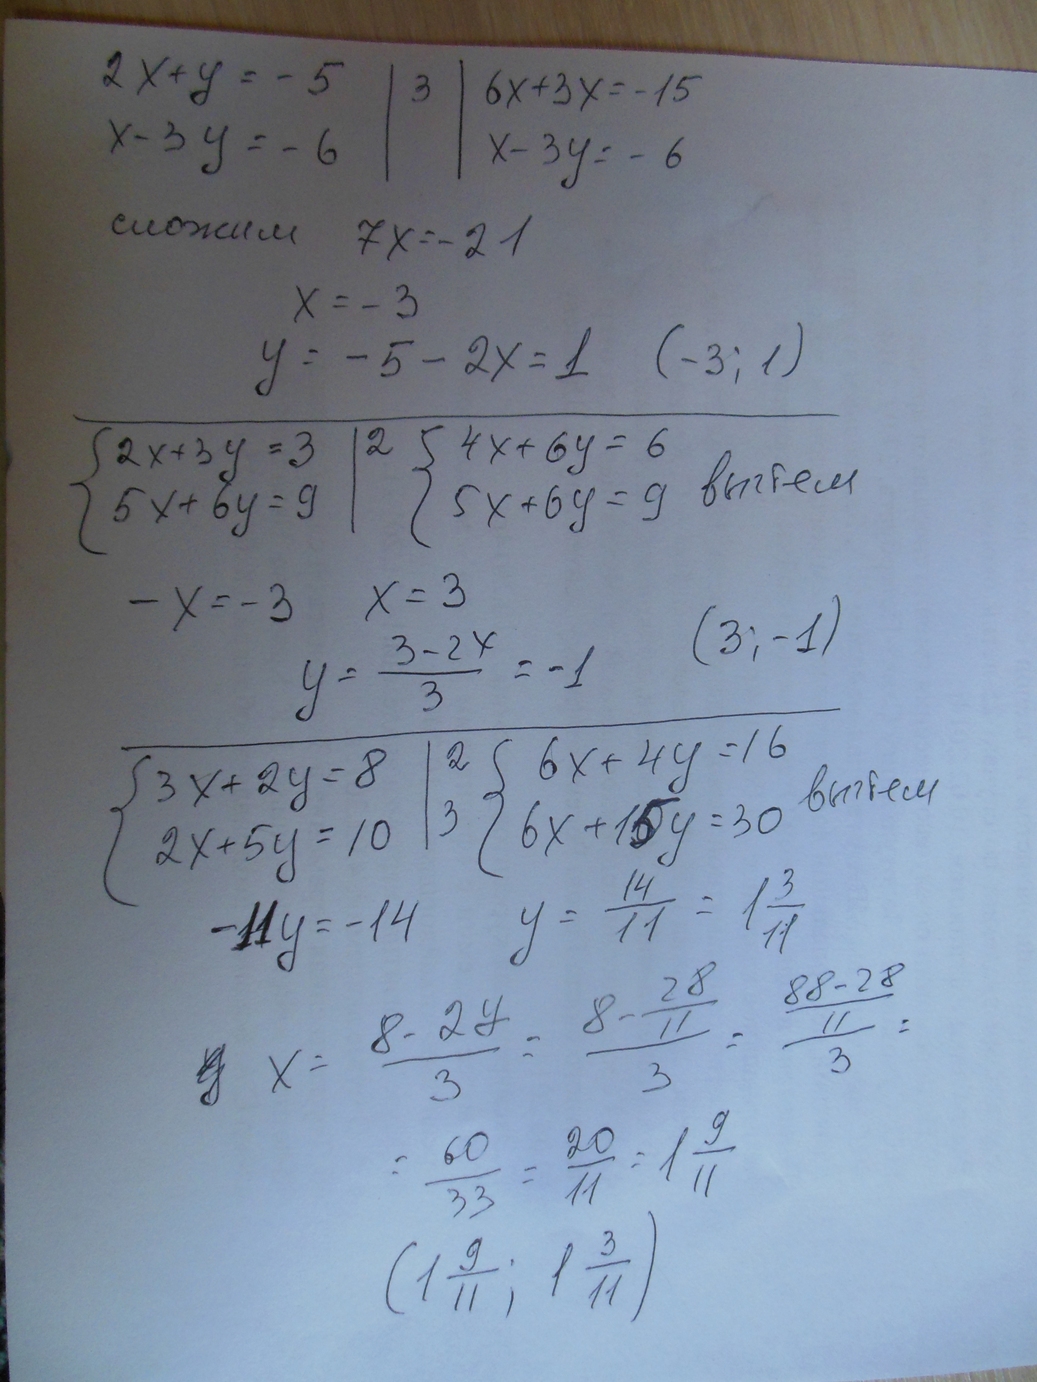 2x+y=-5 | 3 | 6x+3x=-15
x-3y=-6 | | x-3y=-6
сложим 7x=-21
x=-3
y=-5-2x=1 (-3; 1)
{2x+3y=3 | 2 {4x+6y=6
5x+6y=9 | 5x+6y=9 вычтем
-x=-3 x=3
y=\frac{3-2x}{3}=-1 (3; -1)
{3x+2y=8 | 2 {6x+4y=16
2x+5y=10 | 3 6x+15y=30 вычтем
-11y=-14 y=\frac{14}{11}=1\frac{3}{11}
x=\frac{8-2y}{3}=\frac{8-\frac{28}{11}}{3}=\frac{\frac{88-28}{11}}{3}=
=\frac{60}{33}=\frac{20}{11}=1\frac{9}{11}
(1\frac{9}{11}; 1\frac{3}{11})